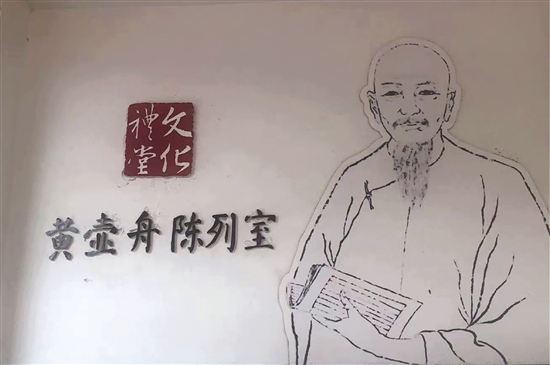 文化
禮堂
黄壶舟陈列室